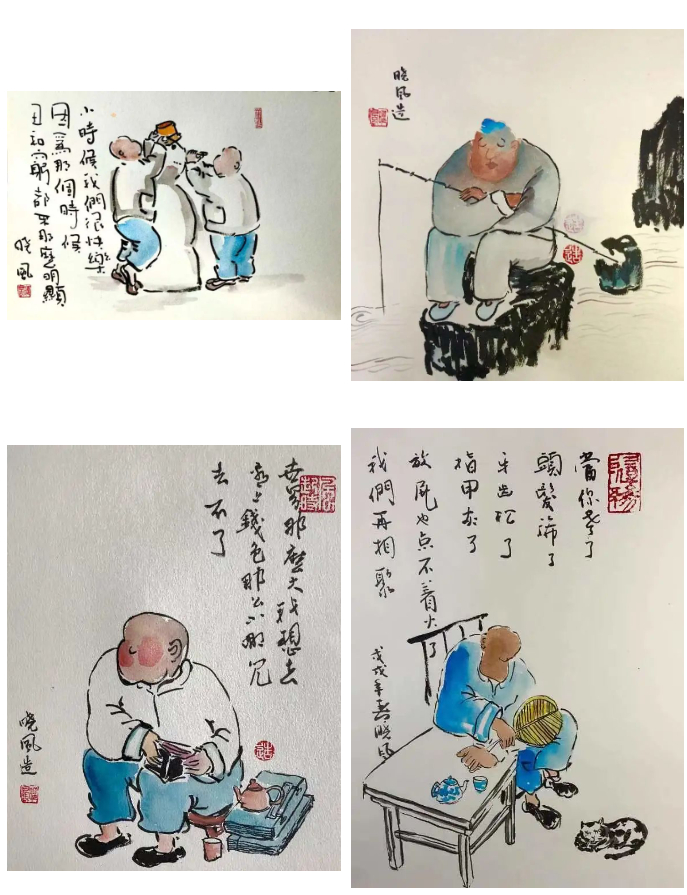 小時候我們很快樂
因爲那個時候
丑和窮都不那麼明顯
晓風
晓風造
世界那麼大我想去
看看錢包那么小哪兒
去不了
晓風造
當你老了
頭髮稀了
牙齒松了
指甲灰了
放屁也点不着火了
我們再相聚
戊戌年春晓風